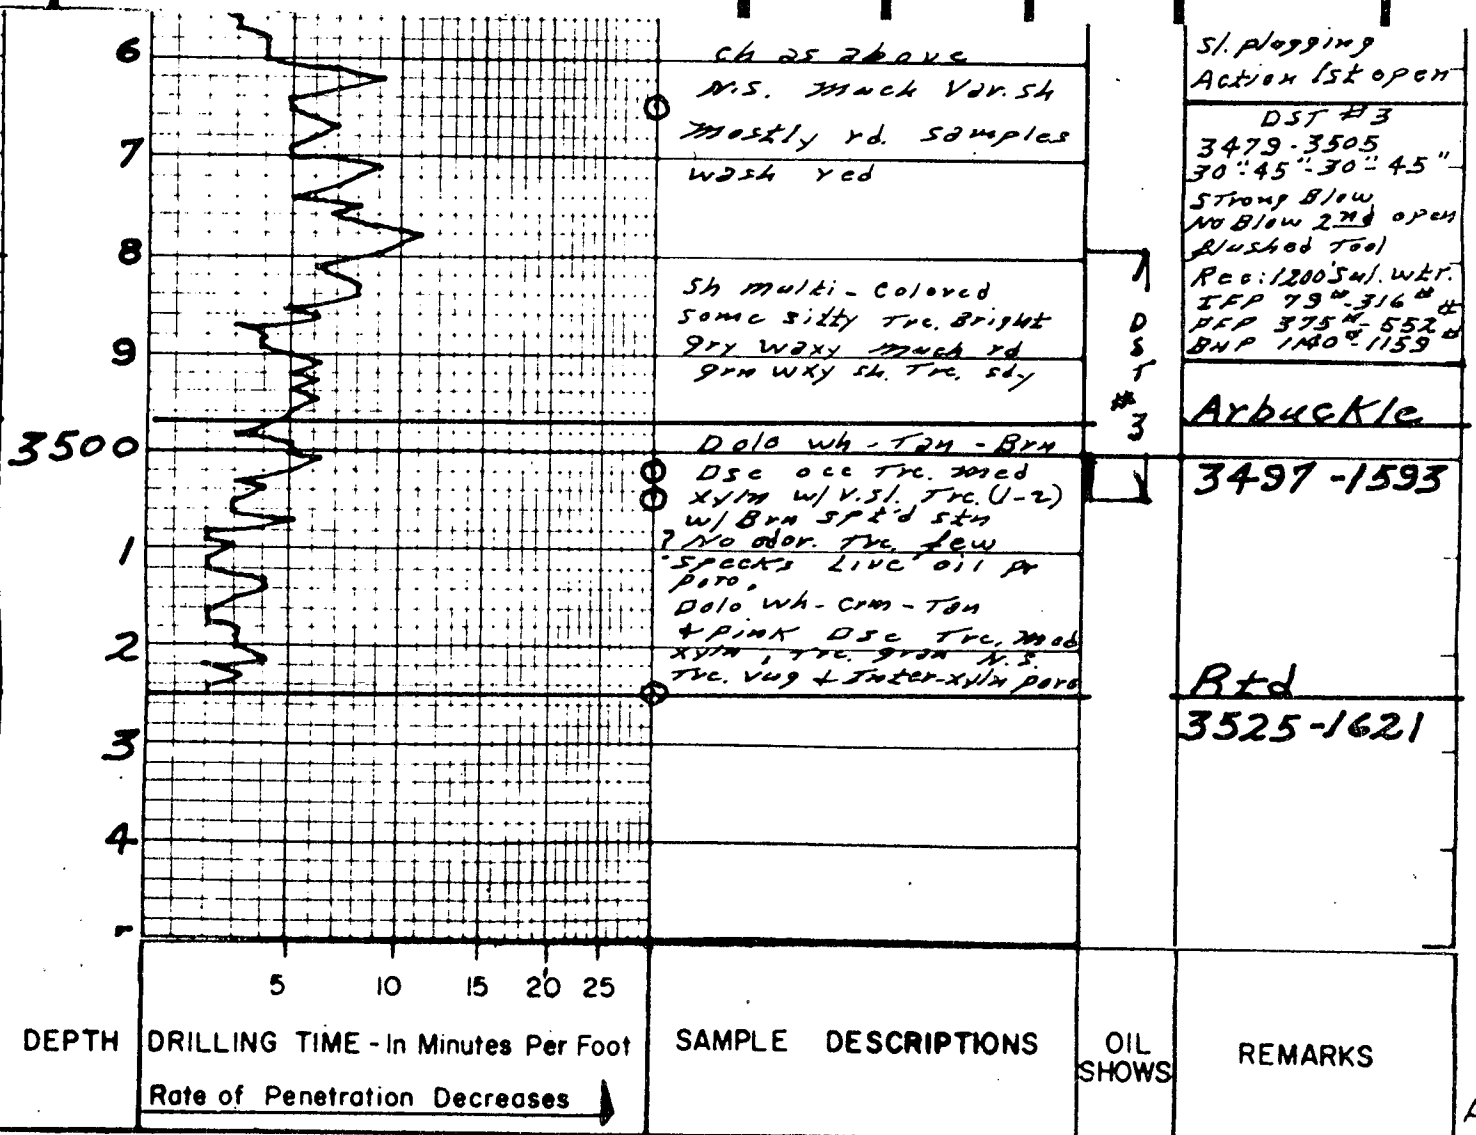 6
7
8
9
3500
1
2
3
4
ch as above
N.S. Much Var. sh
Mostly rd. samples
wash red
Sh multi-colored
some silty Trc. Bright
gry waxy much rd
grn wxy sh. Trc. sdy
Dolo wh-Tan-Brn
Dsc occ Trc. med
xyln w/ v.sl. Trc. (1-2)
w/ Brn spt'd stn
? No odor. Trc. few
specks Live oil pr
poro.
Dolo wh-crm-Tan
+ pink Dsc Trc. Med
xyln, Trc. gran N.S.
Trc. vug + Inter-xyln poro
DST #3
sl. plugging
Action 1st open
DST #3
3479-3505
30"-45"-30"-45"
Strong Blow
No Blow 2nd open
flushed Tool
Rec: 1200' Sul. wtr.
IFP 79#-316#
FFP 375#-552#
BHP 1140#-1159#
Arbuckle
3497 -1593
Rtd
3525 -1621
5 10 15 20 25
DEPTH
DRILLING TIME - In Minutes Per Foot
Rate of Penetration Decreases
SAMPLE DESCRIPTIONS
OIL
SHOWS
REMARKS